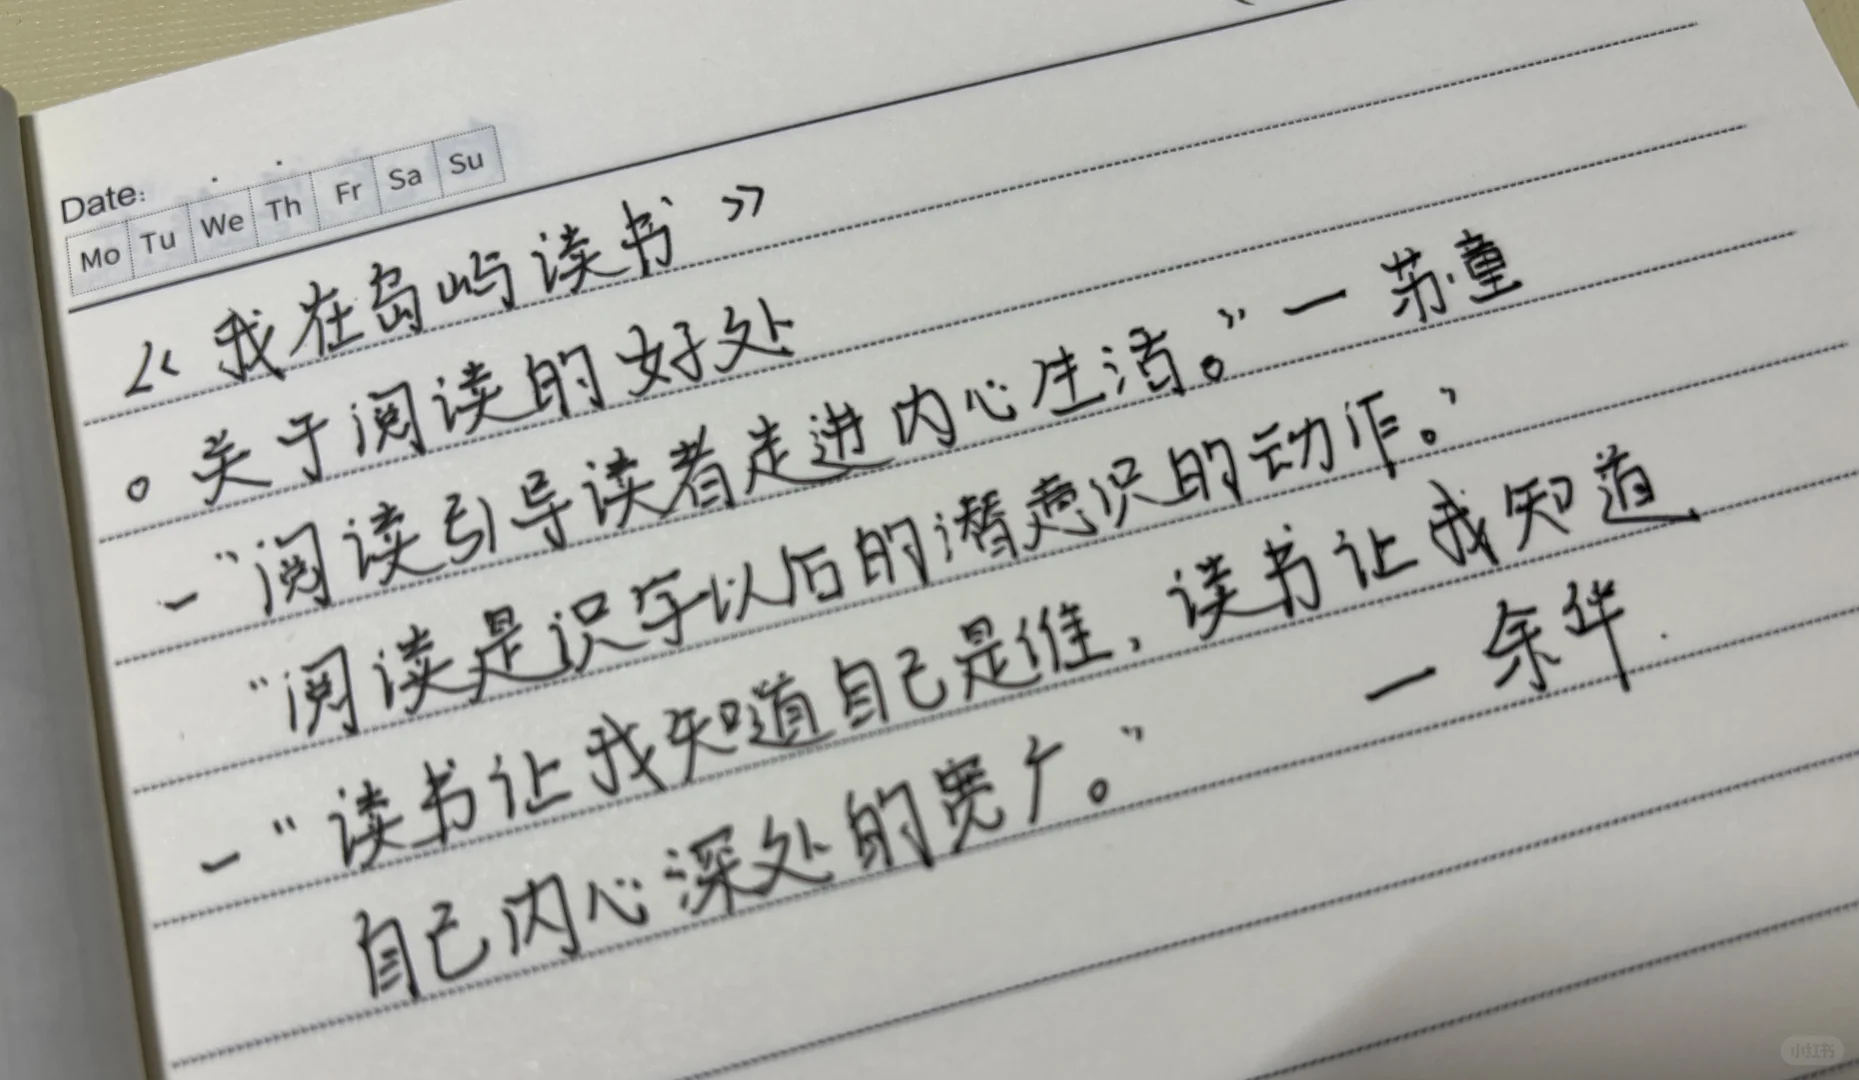 Date:
Mo Tu We Th Fr Sa Su
《我在岛屿读书》
。关于阅读的好处
-“阅读引导读者走进内心生活。”—苏童
“阅读是识字以后的潜意识的动作。”
-“读书让我知道自己是谁，读书让我知道
自己内心深处的宽广。” —余华
小红书